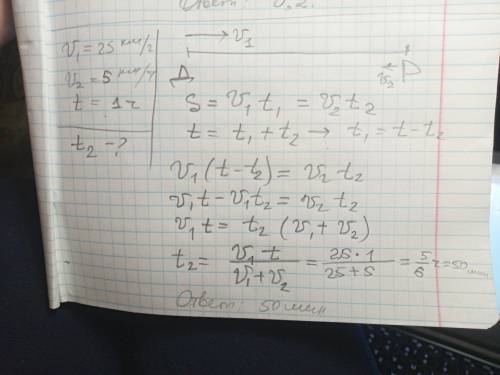 Ответ: 0,2.
v₁ = 25 км/ч
v₂ = 5 км/ч
t = 1 ч
t₂ - ?
v₁
Д
v₂
S = v₁ t₁ = v₂ t₂
t = t₁ + t₂ → t₁ = t - t₂
v₁ (t - t₂) = v₂ t₂
v₁t - v₁t₂ = v₂ t₂
v₁ t = t₂ (v₁ + v₂)
t₂ = v₁ t / (v₁ + v₂) = 25 · 1 / (25 + 5) = 5/6 ч = 50 мин
Ответ: 50 мин